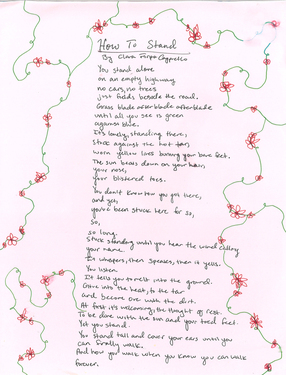 How To Stand
By Clara
You stand alone
on an empty highway
no cars, no trees
just fields beside the road.
Grass blade after blade after blade
until all you see is green
against blue.
It's lonely, standing there,
Stuck against the hot tar,
worn yellow lines burning your bare feet.
The sun beats down on your hair,
your nose,
your blistered toes.
You don't know how you got here,
and yet,
you've been stuck here for so,
so,
so long.
Stuck standing until you hear the wind calling
your name.
It whispers, then speaks, then it yells.
You listen.
It tells you to melt into the ground.
into the heat, to the tar
and become one with the dirt.
At first it's welcoming, the thought of rest.
To be done with the sun and your tired feet.
Yet you stand.
You stand tall and cover your ears until you
can finally walk.
And how you walk when you know you can walk
forever.